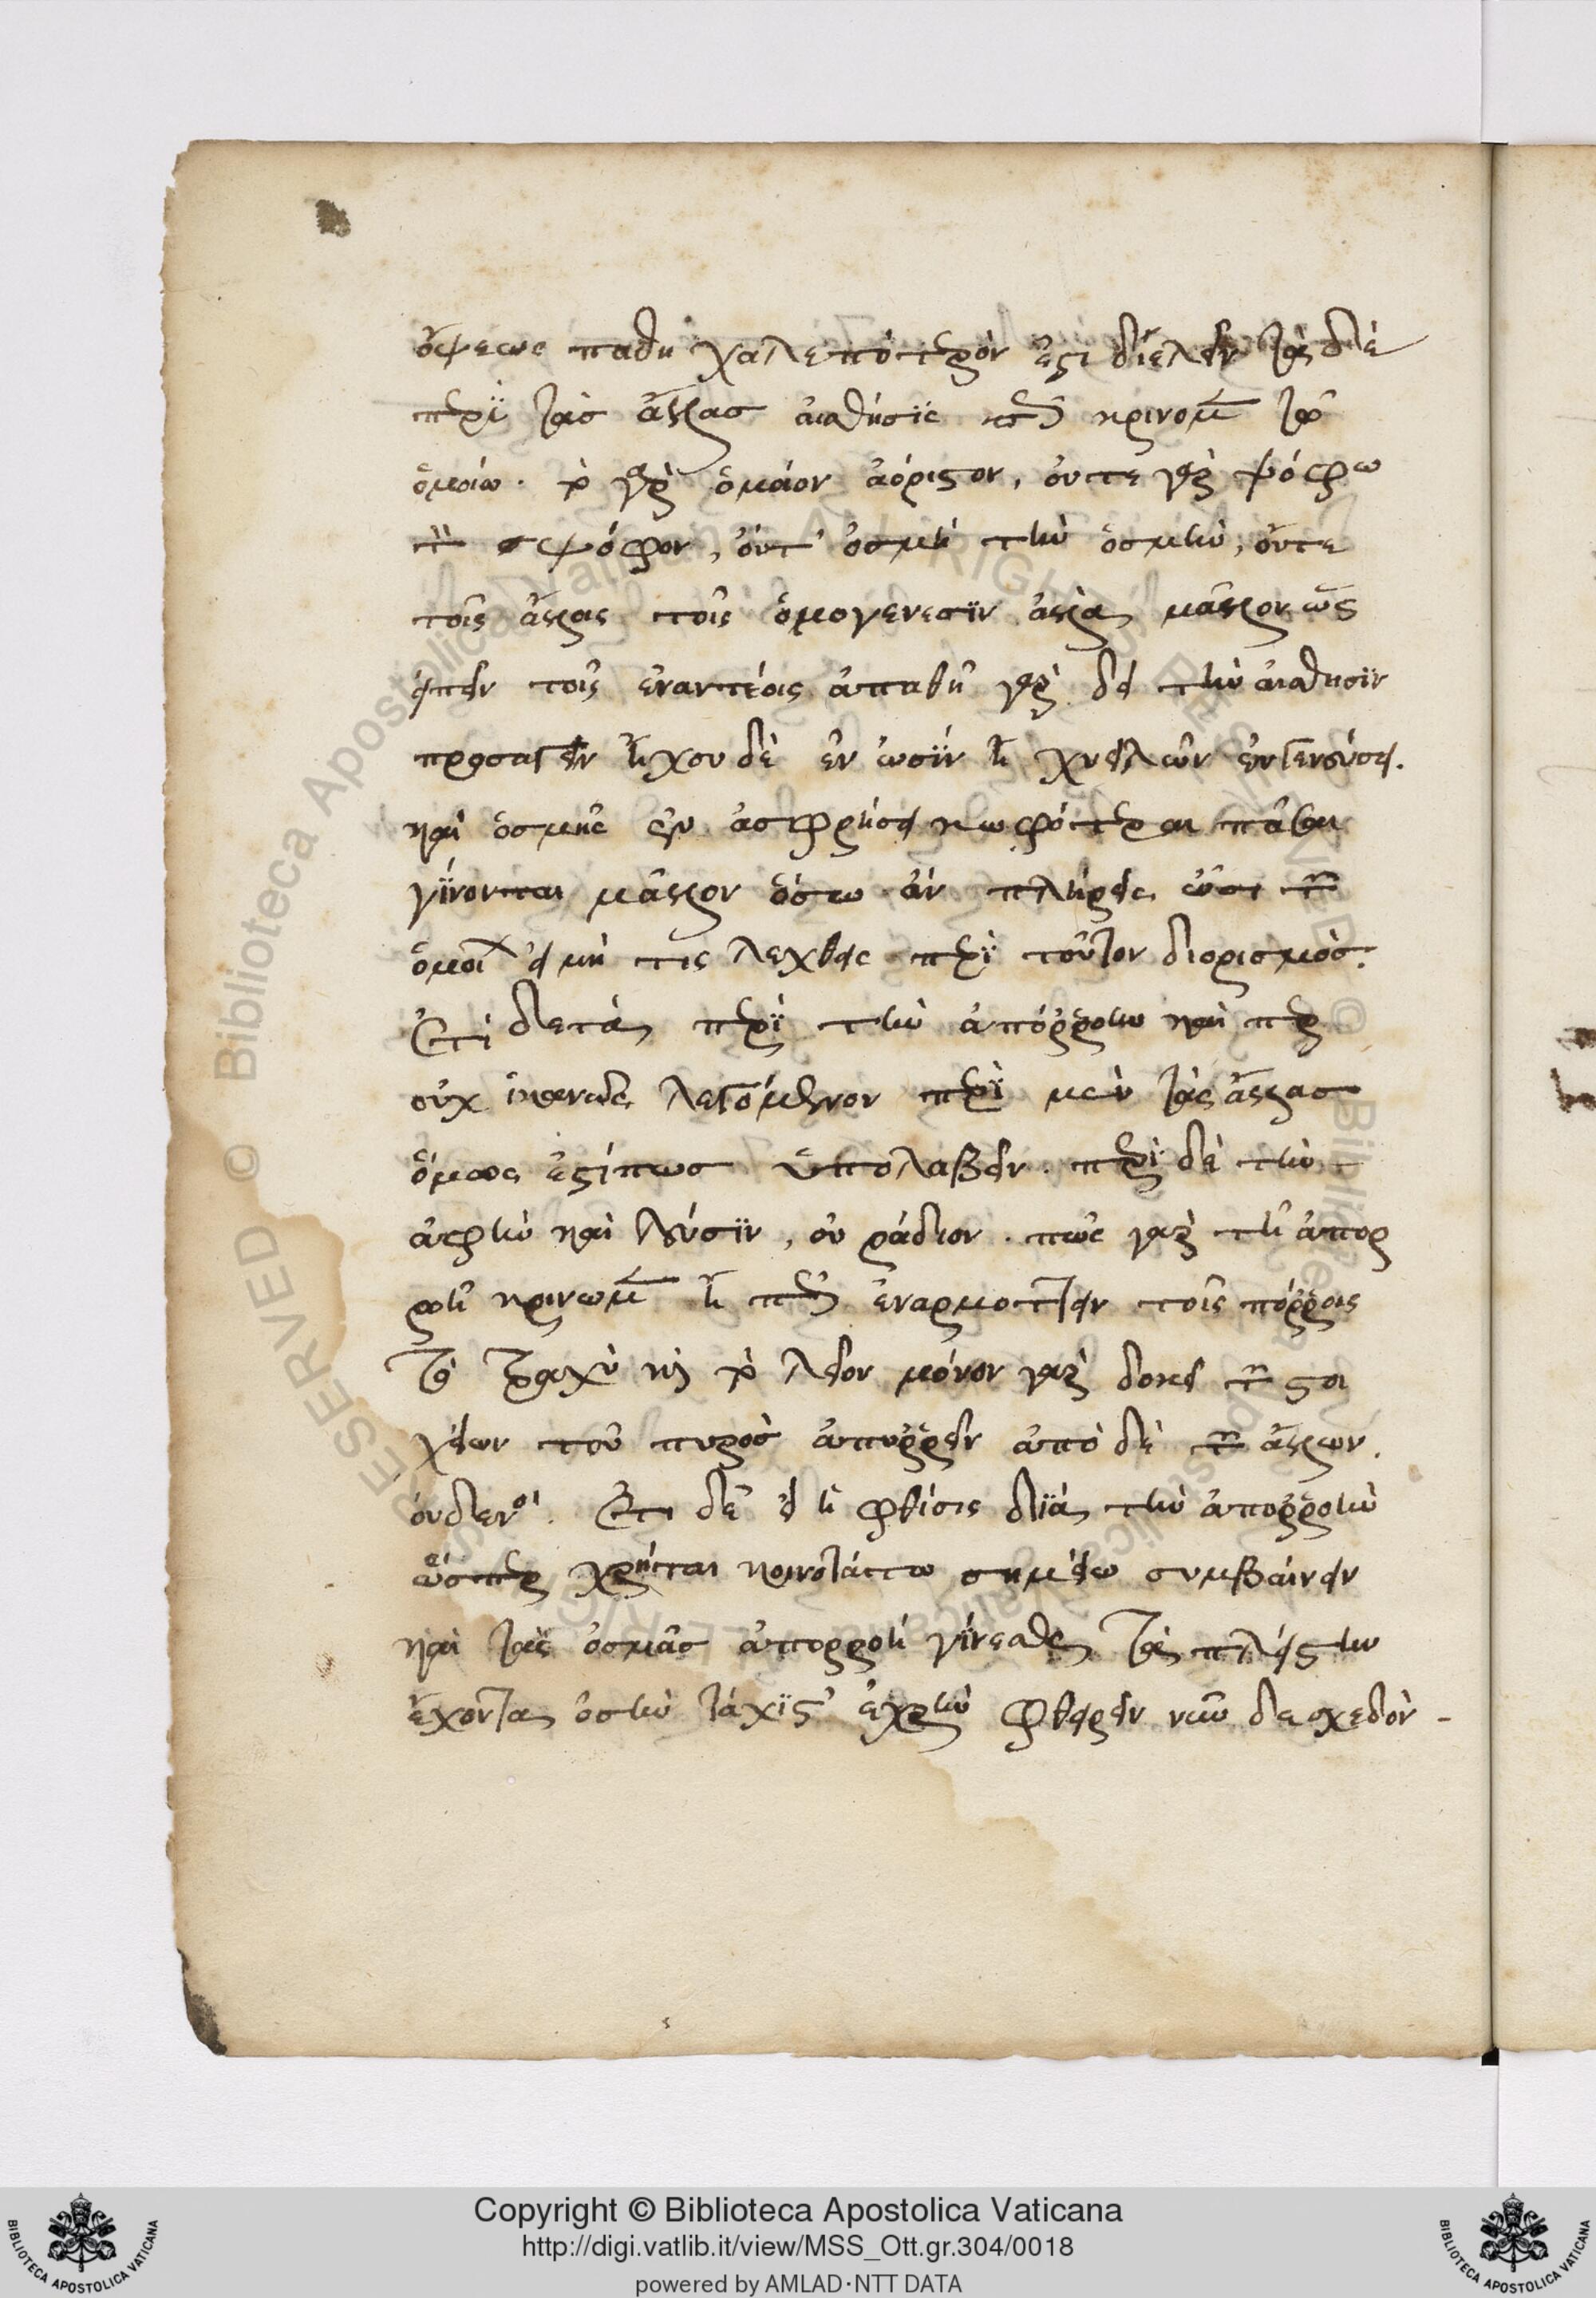 ὄψεως πάθη χαλεπώτερον ἐστι διελεῖν τὰς δὲ
περὶ τὰς ἄλλας αἰσθήσεις πῶς κρίνομεν τῷ
ὁμοίω. τὸ γὰρ ὅμοιον ἀόριστον, οὔτε γὰρ ψόφω
τὸν ψόφον, οὔτ' ὀσμῇ τὴν ὀσμὴν, οὔτε
τοῖς ἄλλοις τοῖς ὁμογενέσιν ἀλλὰ μᾶλλον ὡς
εἰπεῖν τοῖς ἐναντίοις ἀπαθῆ γὰρ δεῖ τὴν αἴσθησιν
προσάγειν ἤχου δὲ ἐν ὠσὶν ἢ χυλῶν ἐν γεύσει.
καὶ ὀσμῆς ἐν ὀσφρήσει κωφότεραι πᾶσαι
γίνονται μᾶλλον ὅσω ἂν πλήρεις ὦσι τῶν
ὁμοίων εἰ μή τις λεχθεὶς περὶ τούτων διορισμὸς.
Ἔτι δὲ τὰ περὶ τὴν ἀπόρροιαν καὶ περ
οὐχ ἱκανῶς λεγόμενον περὶ μὲν τὰς ἄλλας
ὅμως ἐστί πως ὑπολαβεῖν. περὶ δὲ τὴν
ἁφὴν καὶ γεῦσιν, οὐ ράδιον. πῶς γὰρ τῇ ἀπορ
ροῇ κρίνωμεν ἢ πῶς ἐναρμόττειν τοῖς πόροις
τὸ τραχὺ καὶ τὸ λεῖον μόνον γὰρ δοκεῖ τῶν στοι
χείων τοῦ πυρὸς ἀπορρεῖν ἀπὸ δὲ τῶν ἄλλων.
οὐδενός. Ἔτι δὲ εἰ ἡ φθίσις διὰ τὴν ἀπορροὴν
ὥσπερ χρῆται κοινοτάτω σημείω συμβαίνειν
καὶ τὰς ὀσμὰς ἀπορροῇ γίνεσθαι τὰ πλείστην
ἔχοντα ὀσμὴν τάχιστ' ἐχρῆν φθείρειν νῦν δὲ σχεδὸν
Copyright © Biblioteca Apostolica Vaticana
http://digi.vatlib.it/view/MSS_Ott.gr.304/0018
powered by AMLAD·NTT DATA